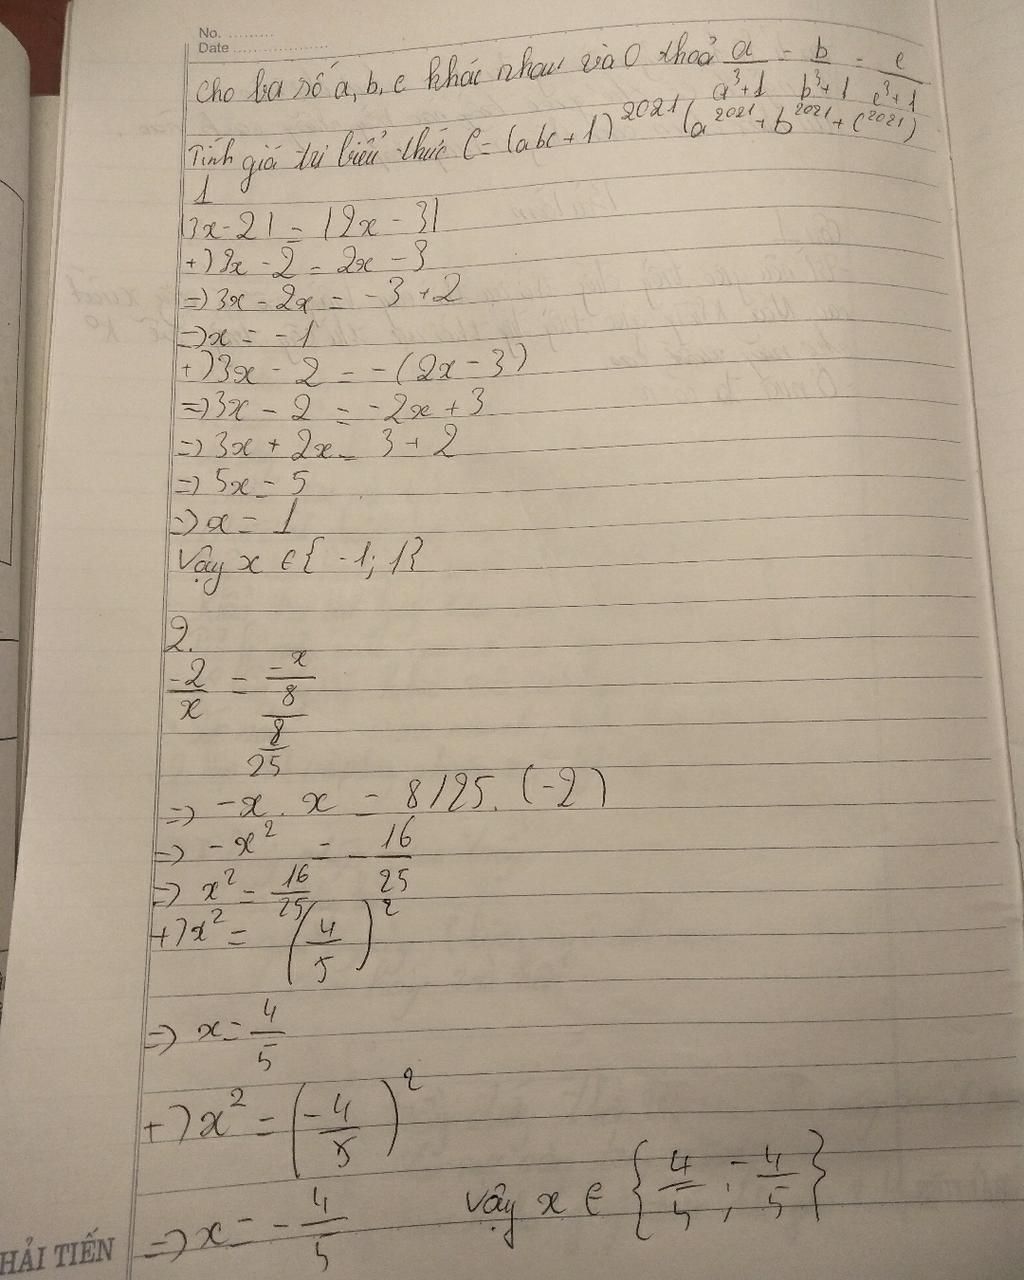 No. .........
Date ...................
cho ba số a, b, c khác nhau và 0 thoả a/(a³+1) = b/(b³+1) = c/(c³+1)
Tính giá trị biểu thức C = (abc+1)²⁰²¹ (a²⁰²¹ + b²⁰²¹ + c²⁰²¹)
1
|3x-2| = |2x-3|
+) 3x - 2 = 2x - 3
=> 3x - 2x = -3 + 2
=> x = -1
+) 3x - 2 = -(2x-3)
=> 3x - 2 = -2x + 3
=> 3x + 2x = 3 + 2
=> 5x = 5
=> x = 1
Vậy x ∈ {-1; 1}
2.
-2/x = -x/(8/25)
=> -x . x = 8/25. (-2)
=> -x² = -16/25
=> x² = 16/25
+) x² = (4/5)²
=> x = 4/5
+) x² = (-4/5)²
=> x = -4/5 Vậy x ∈ {4/5; -4/5}
HẢI TIẾN